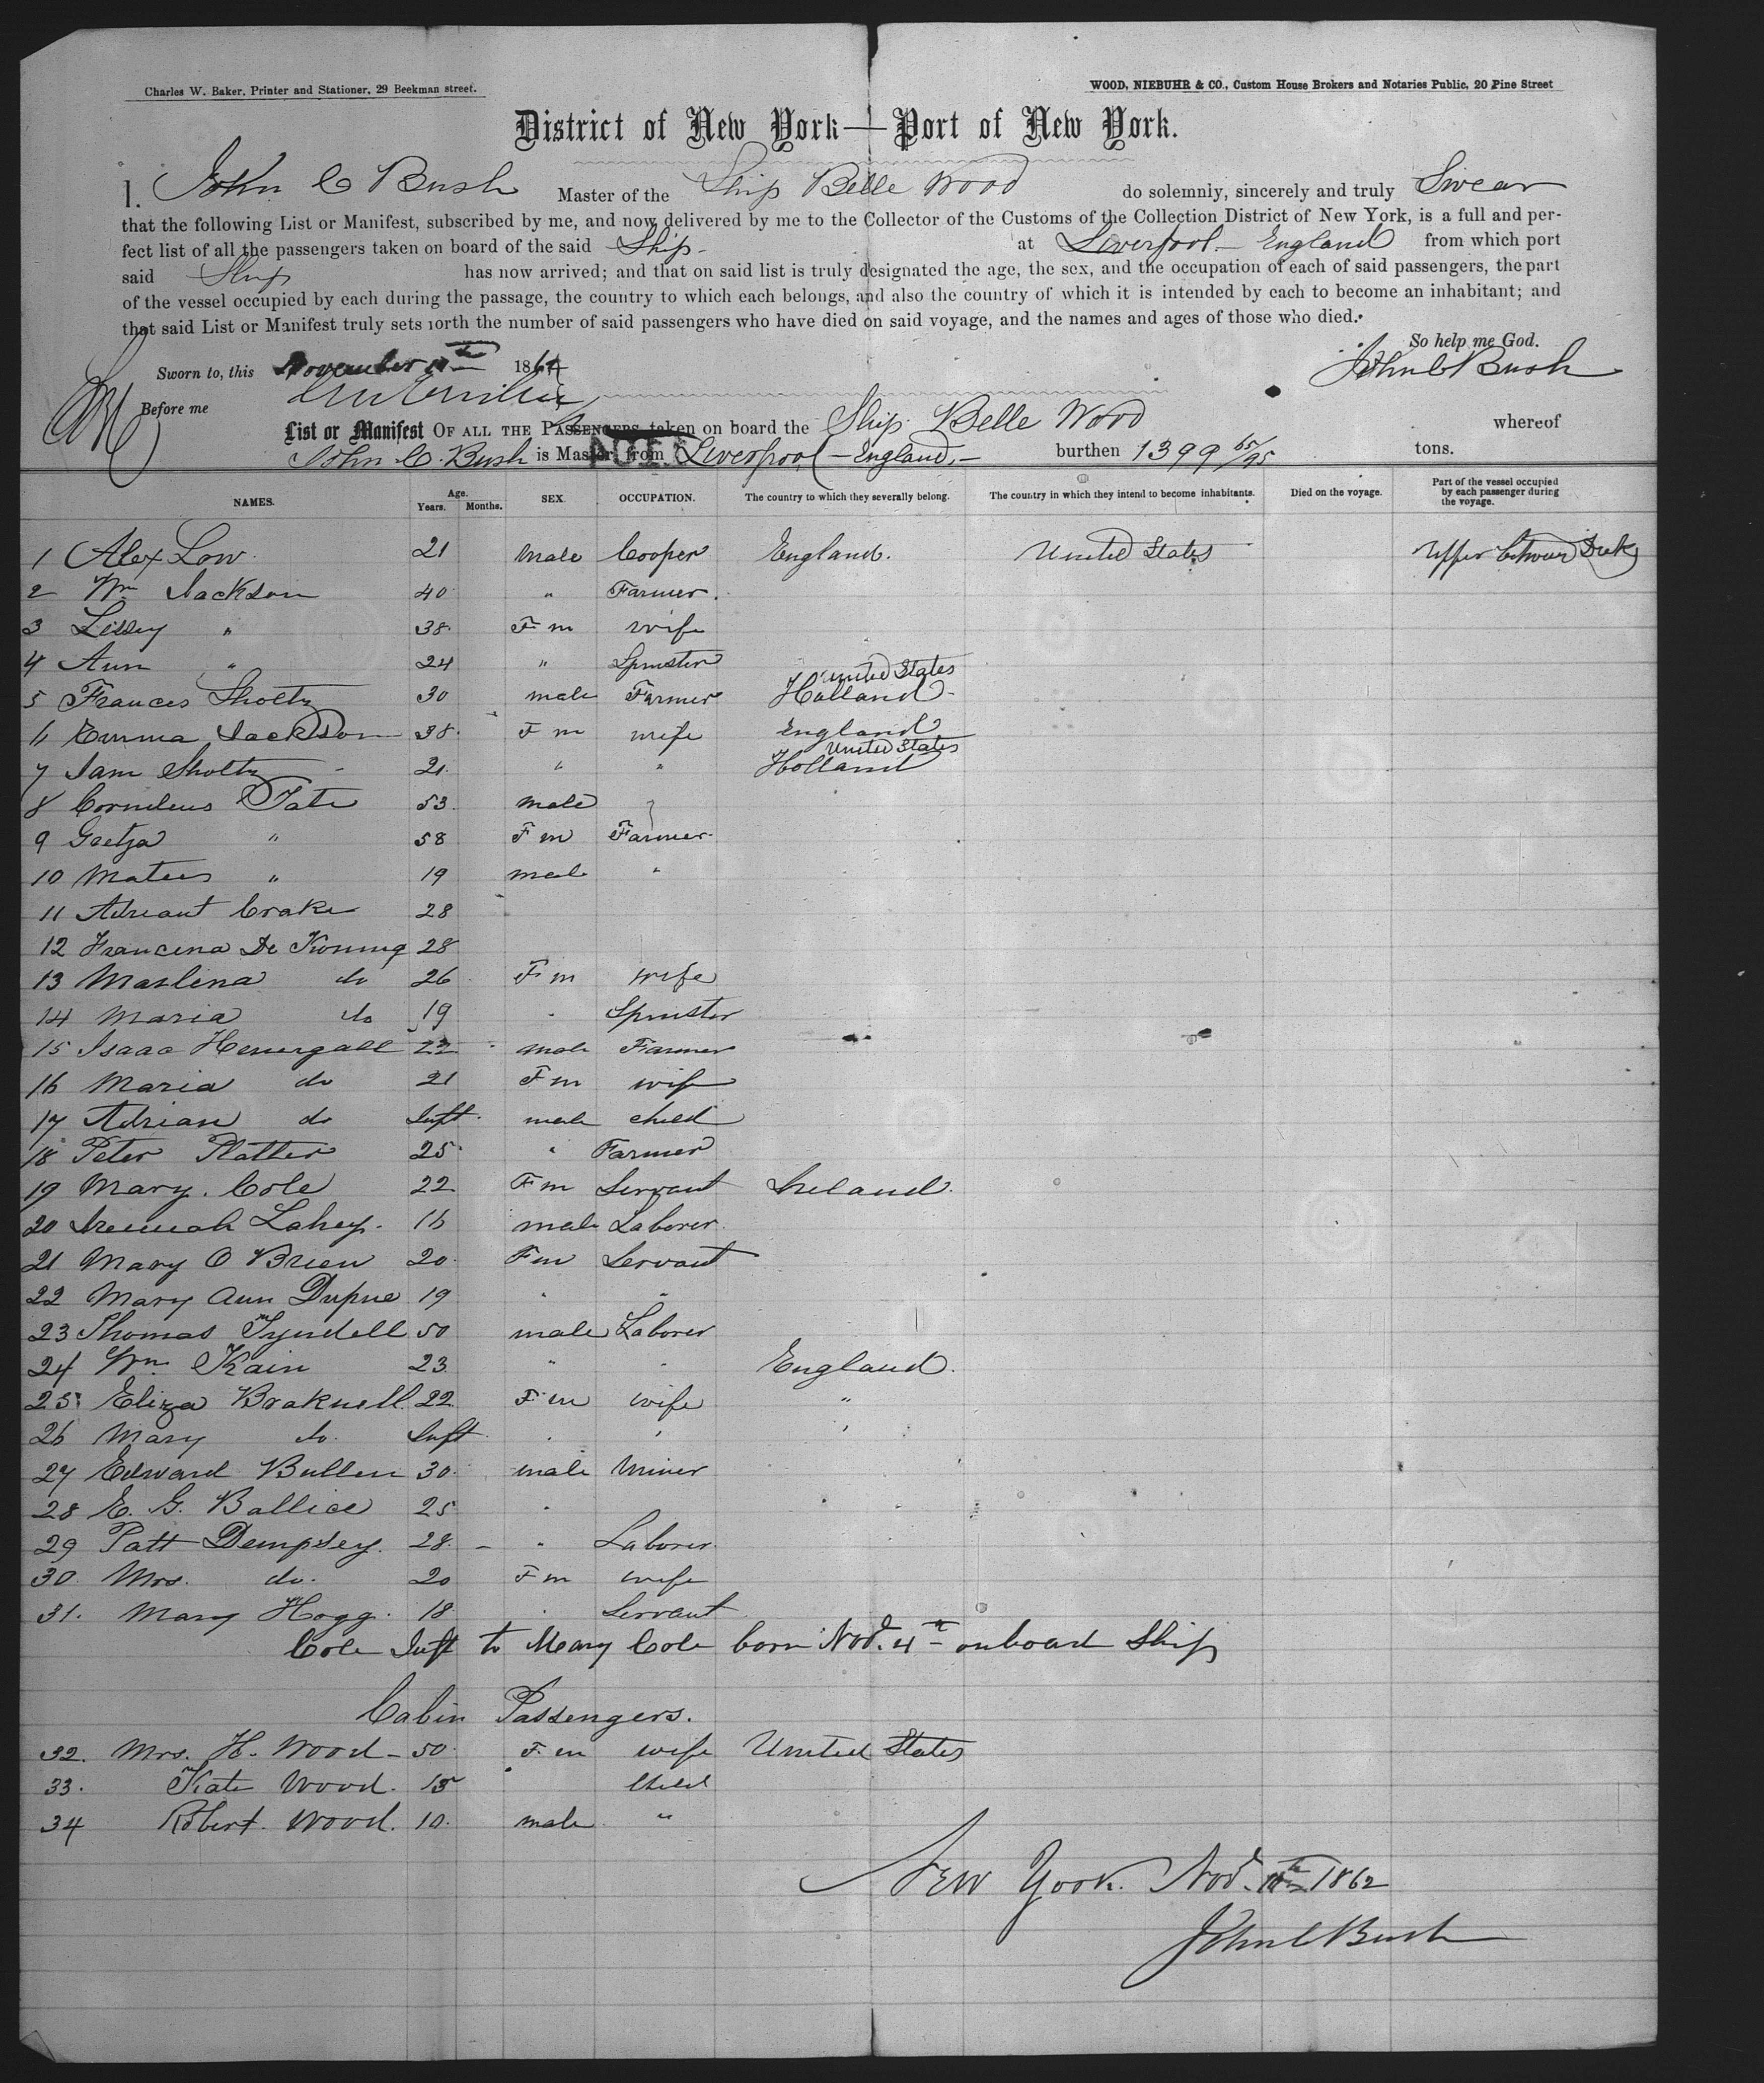 Charles W. Baker, Printer and Stationer, 29 Beekman street.
WOOD, NIEBUHR & CO., Custom House Brokers and Notaries Public, 20 Pine Street
District of New York—Port of New York.
I, John C Bush Master of the Ship Belle Wood do solemnly, sincerely and truly Swear
that the following List or Manifest, subscribed by me, and now delivered by me to the Collector of the Customs of the Collection District of New York, is a full and per-
fect list of all the passengers taken on board of the said Ship at Liverpool - England from which port
said Ship has now arrived; and that on said list is truly designated the age, the sex, and the occupation of each of said passengers, the part
of the vessel occupied by each during the passage, the country to which each belongs, and also the country of which it is intended by each to become an inhabitant; and
that said List or Manifest truly sets forth the number of said passengers who have died on said voyage, and the names and ages of those who died.
So help me God.
Sworn to, this November 186 John C Bush
Before me
List or Manifest OF ALL THE PASSENGERS taken on board the Ship Belle Wood whereof
John C. Bush is Master, from Liverpool - England - burthen 1399 65/95 tons.
NAMES. Age. Years. Months. SEX. OCCUPATION. The country to which they severally belong. The country in which they intend to become inhabitants. Died on the voyage. Part of the vessel occupied by each passenger during the voyage.
1 Alex Low 21 male Cooper England. United States Upper between Deck
2 Wm Jackson 40 " Farmer
3 Lissey " 38 Fm wife
4 Ann " 24 " Spinster
United States
5 Frances Sholtz 30 male Farmer Holland
6 Emma Jackson 38 Fm wife England
United States
7 Jam Sholtz 21 " " Holland
8 Cornelius Tate 53 male
9 Gretja " 58 Fm Farmer
10 Mateus " 19 male "
11 Adreant Crake 28
12 Francena De Koning 28
13 Maslena do 26 Fm wife
14 Maria do 19 " Spinster
15 Isaac Henergall 22 male Farmer
16 Maria do 21 Fm wife
17 Adrian do Inft male child
18 Peter Platter 25 " Farmer
19 Mary Cole 22 Fm Servant Ireland
20 Lahey 16 male Laborer
21 Mary O Brien 20 Fm Servant
22 Mary Ann Dupne 19 " "
23 Thomas Tyndell 50 male Laborer
24 Wm Kain 23 " " England
25 Eliza Braknell 22 Fm wife "
26 Mary do Inft " " "
27 Edward Bullen 30 male Miner
28 E. G. Ballice 25 "
29 Patt Dempsey 28 " Laborer
30 Mrs. do. 20 Fm wife
31. Mary Hogg 18 " Servant
Cole Inft to Mary Cole born Nov. 4th onboard Ship
Cabin Passengers.
32. Mrs. H. Wood 50 Fm wife United States
33. Kate Wood 15 Child
34 Robert Wood 10 male "
New York Nov. 1862
John C Bush